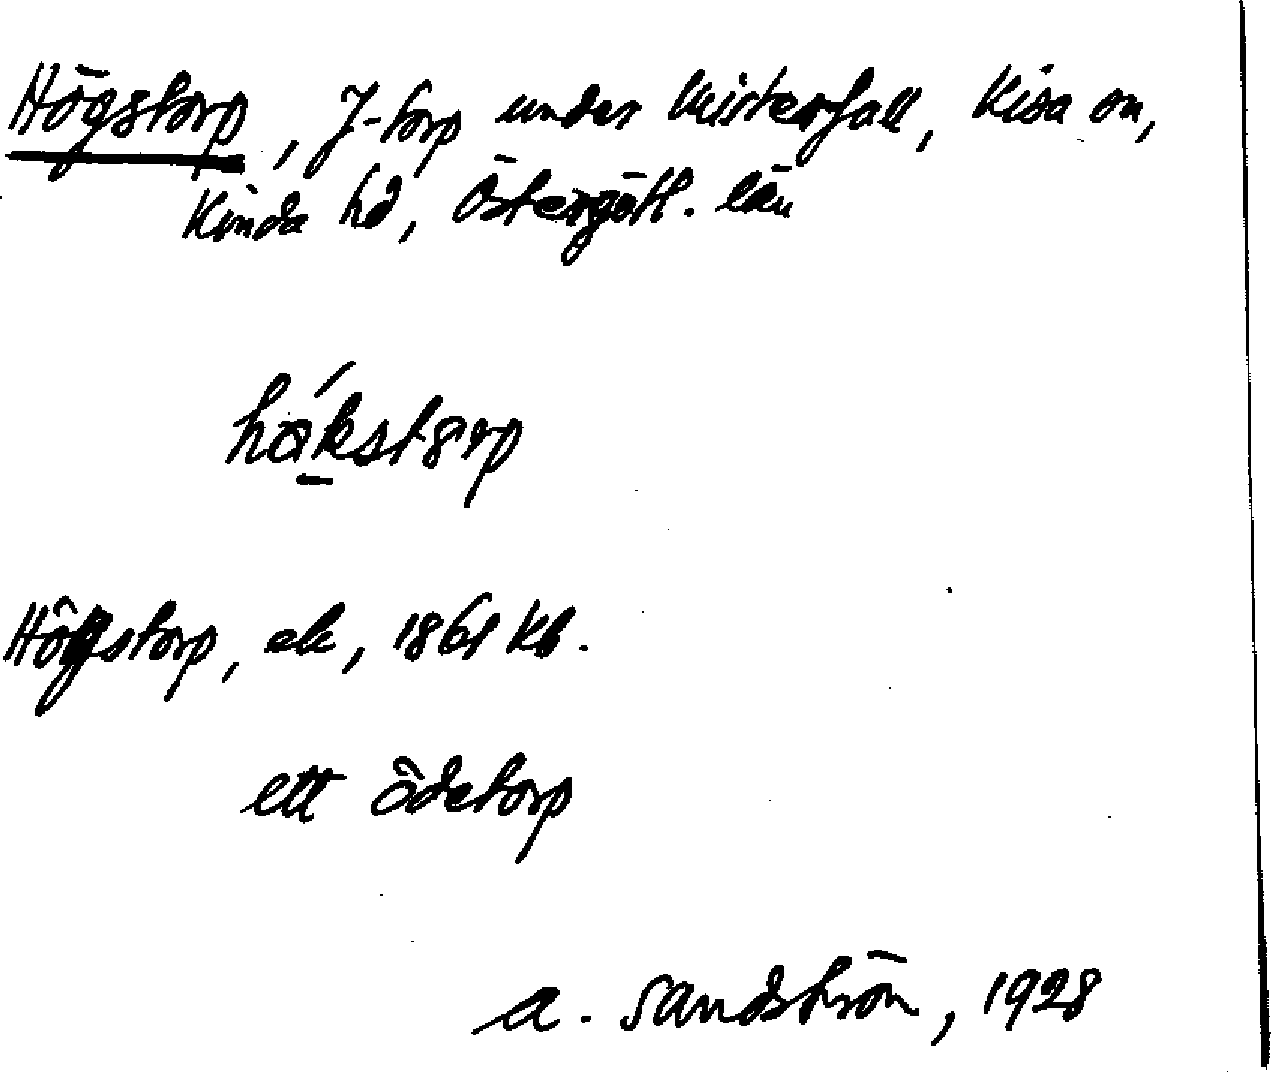 Högstorp, f-torp under Misterfall, Kisa sn,
Kinda hd, Östergötl. län
håkstorp
Högstorp, ek, 1861 Kb.
ett ödetorp
A. Sandström, 1928